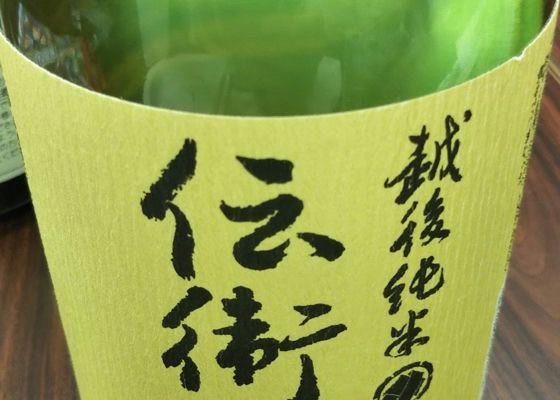 越後純米
伝衛